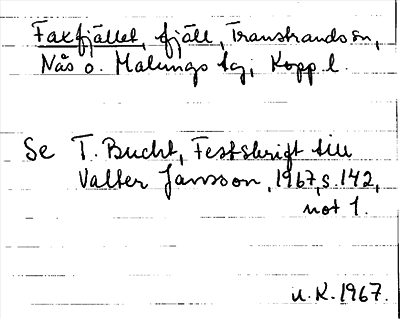 Faxfjället, fjäll, Transtrands sn,
Nås o. Malungs tg, Kopp.l.
Se T. Bucht, Festskrift till
Valter Jansson, 1967, s. 142,
not 1.
u.K. 1967.